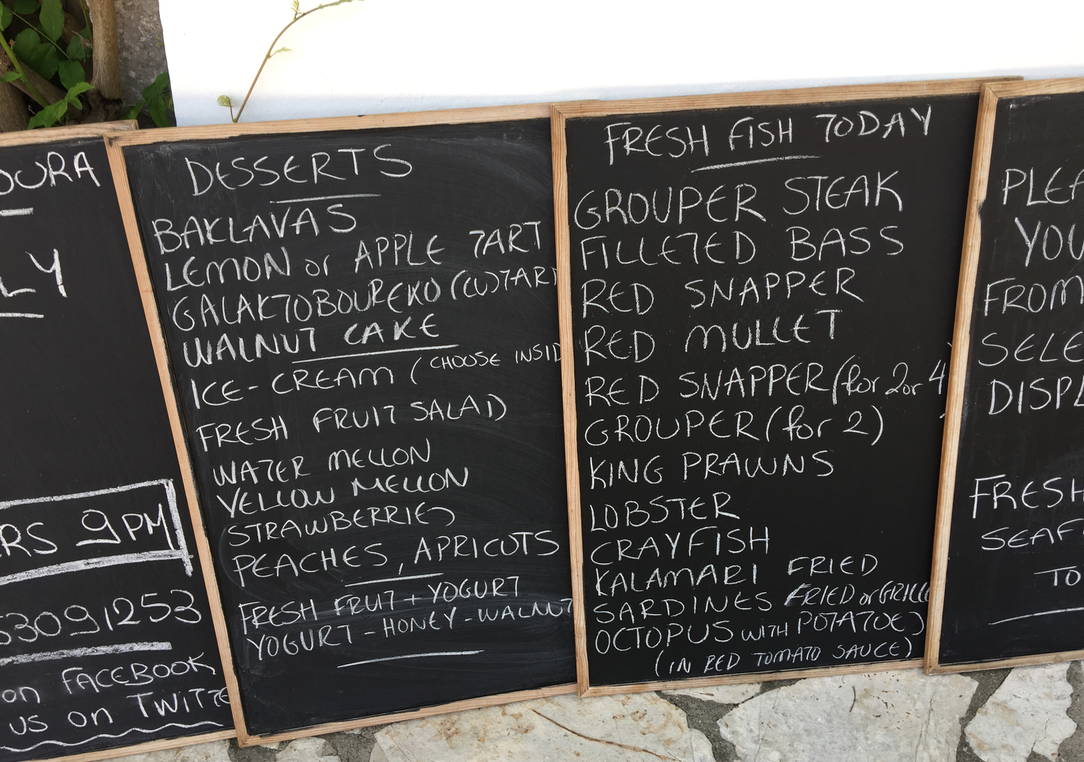 OURA
LY
RS 9PM
3091253
on FACEBOOK
us on TWITTE
DESSERTS
BAKLAVAS
LEMON or APPLE TART
GALAKTOBOUREKO (CU)TARD
WALNUT CAKE
ICE-CREAM (CHOOSE INSID
FRESH FRUIT SALAD
WATER MELLON
YELLOW MELLON
STRAWBERRIES
PEACHES, APRICOTS
FRESH FRUIT + YOGURT
YOGURT - HONEY - WALNUT
FRESH FISH TODAY
GROUPER STEAK
FILLETED BASS
RED SNAPPER
RED MULLET
RED SNAPPER (for 2 or 4
GROUPER (for 2)
KING PRAWNS
LOBSTER
CRAYFISH
KALAMARI FRIED
SARDINES FRIED or GRILL
OCTOPUS WITH POTATOES
(IN RED TOMATO SAUCE)
PLEA
YOU
FROM
SELE
DISPL
FRESH
SEAF
TO